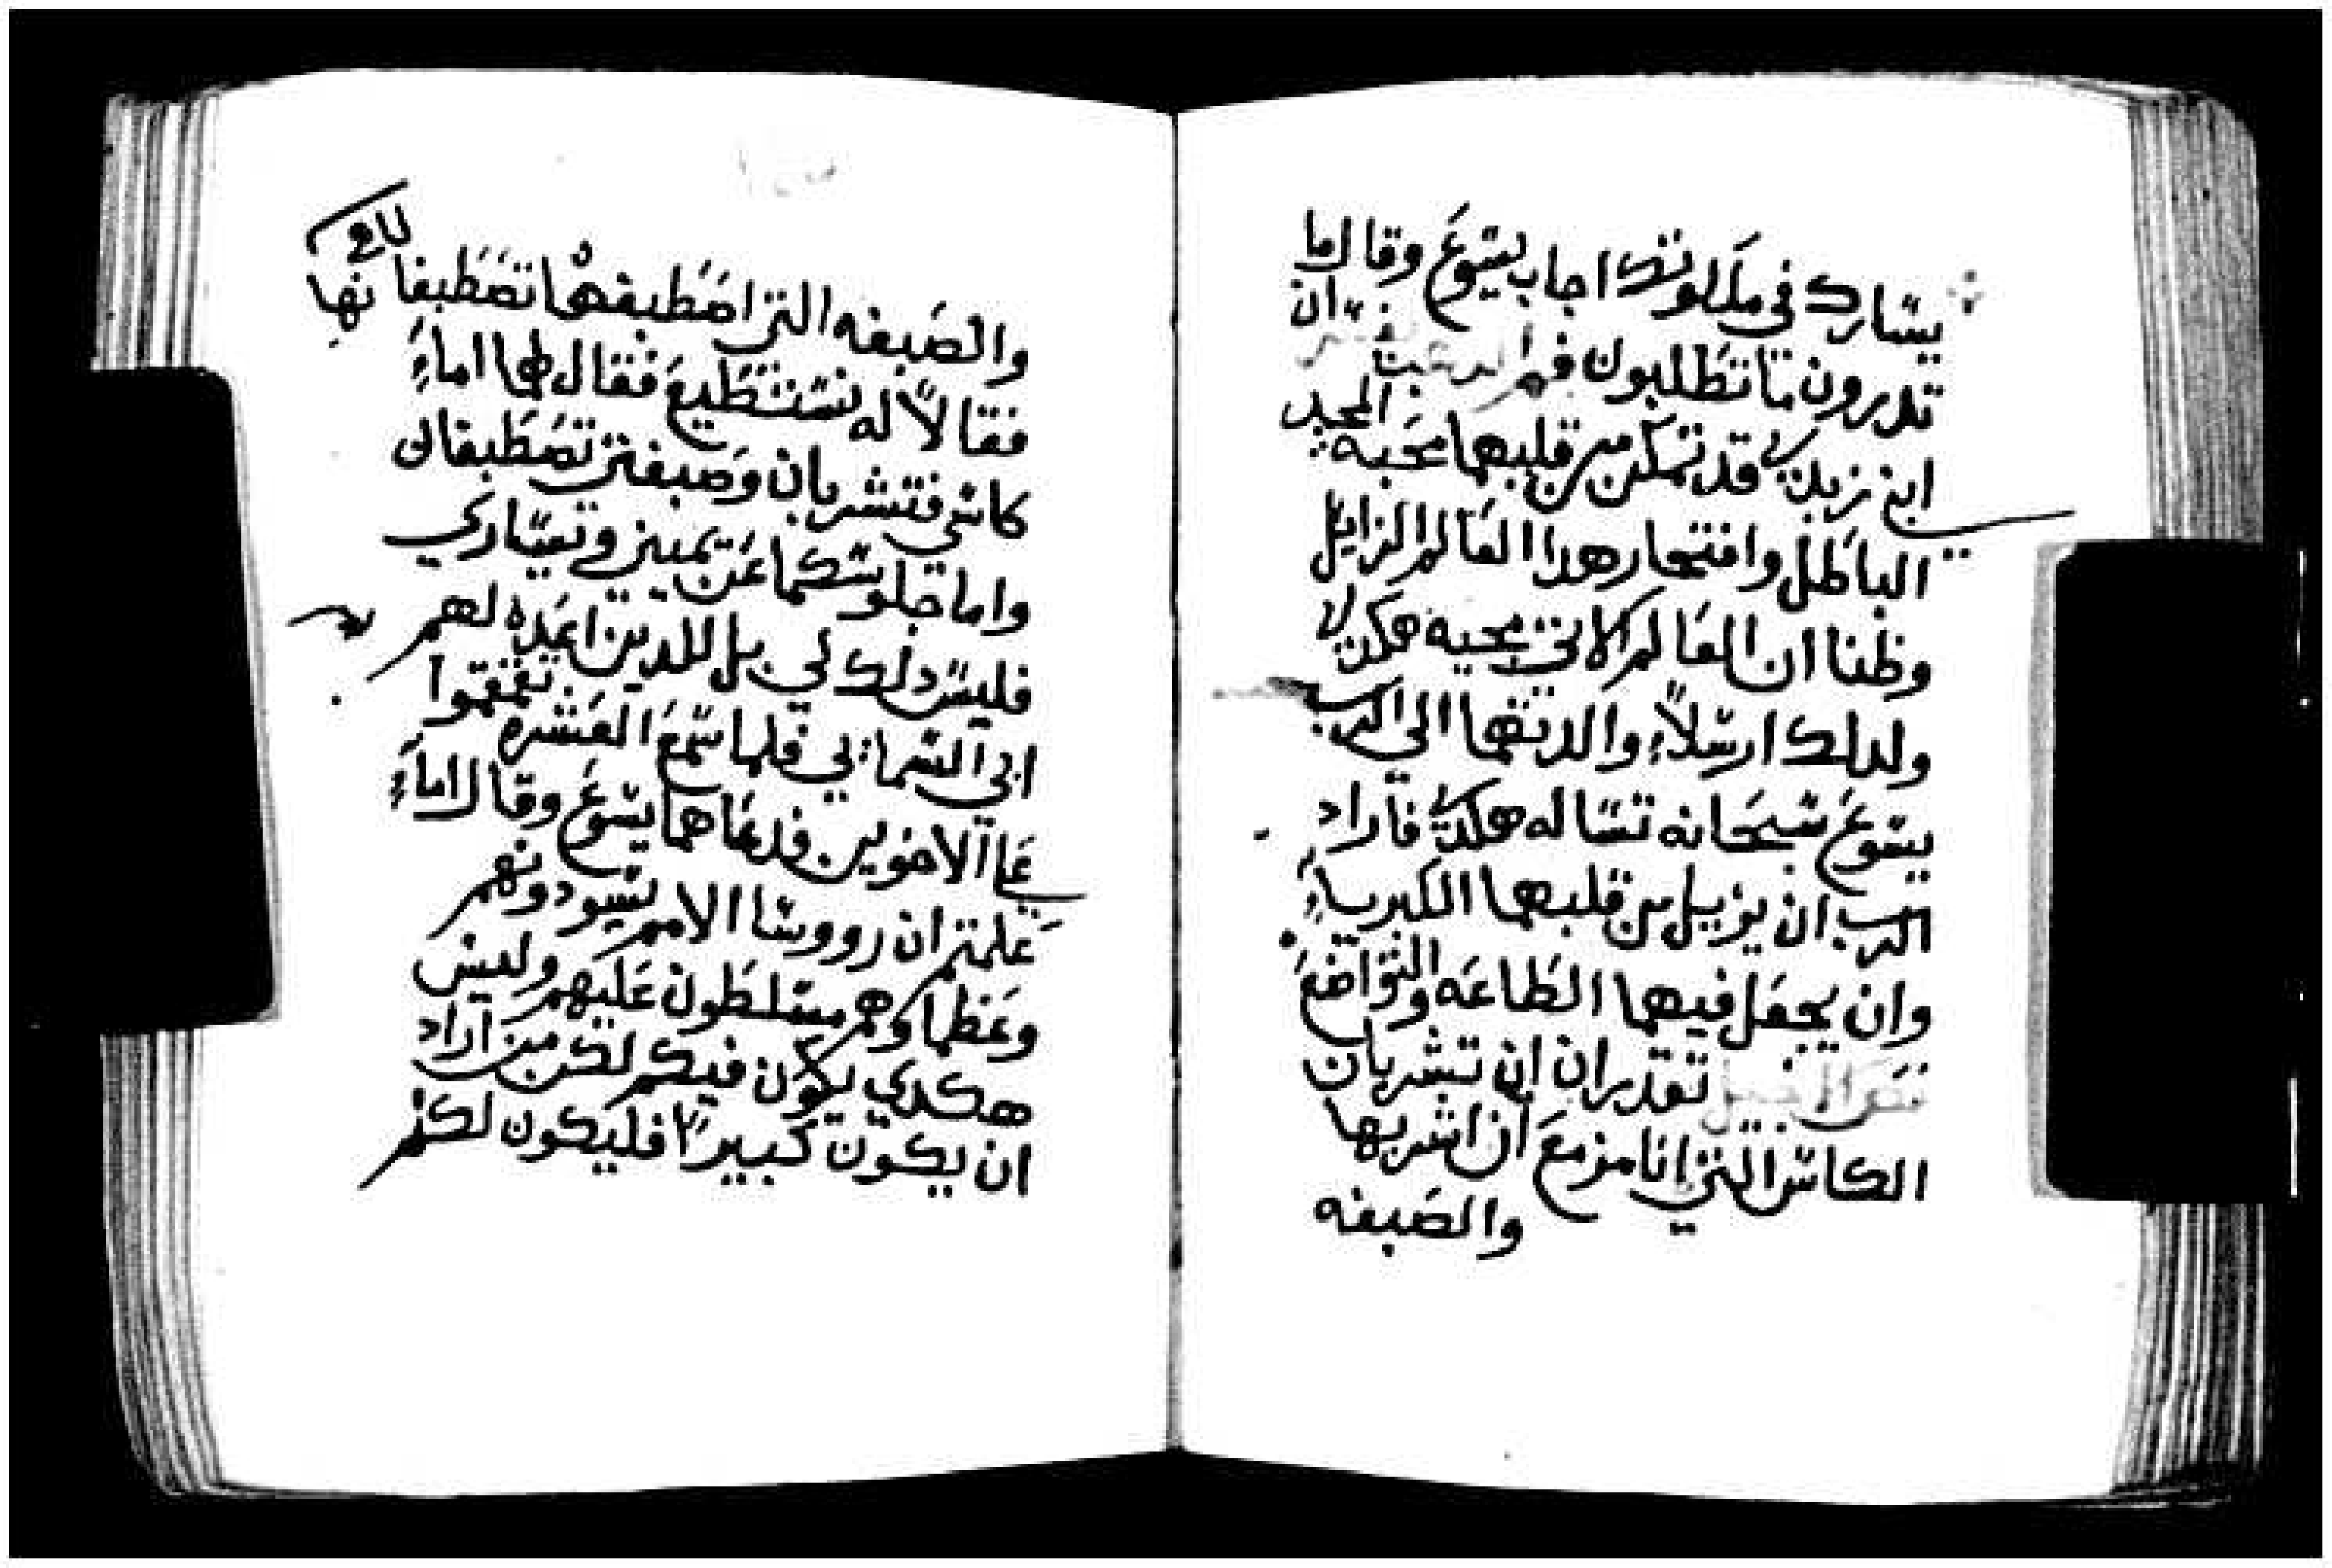 يسارك في ملكوتك اجاب يسوع وقال ما
تدرون ما تطلبون ان
ابني زبدي قد تمكن من قلبهما محبه المجد
الباطل وافتخار هدا العالم الزايل
وظنا ان العالم الاتي محيه هكدي
ولدلك ارسلا والدتهما الي الرب
يسوع سبحانه تساله هكدي فاراد
الرب ان يزيل من قلبهما الكبرياء
وان يجعل فيهما الطاعه والتواضع
تقدران ان تشربان
الكاس التي انا مزمع ان اشربها
والصبغه
والصبغه التي اصطبغها تصطبغانها
فقالا له نستطيع فقال لهما اماء
كاسي فتشربان وصبغتي تصطبغان
واما جلوسكما عن يميني وتيساري
فليس دلك لي بل للدين اعده لهم
ابي السماني فلما سمع العشره تقمقموا
علي الاخوين فدعاهما يسوع وقال اماء
علمتم ان رووسا الامم تسودونهم
وعظماوهم مسلطون عليهم وليس
هكدي يكون فيكم لكن من اراد
ان يكون كبيرا فليكون لكم